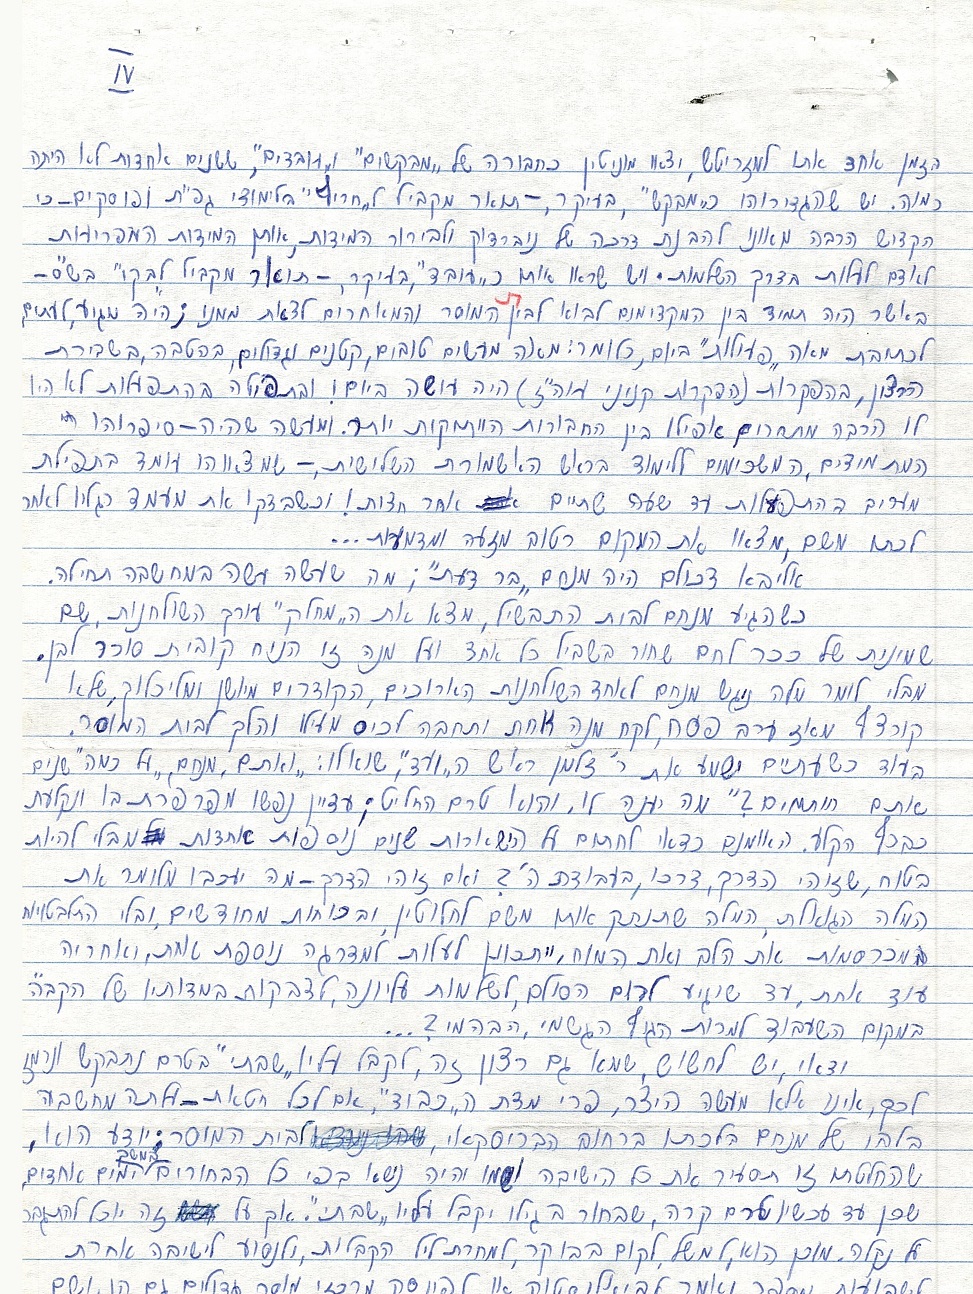 IV
בזמן אחד אתו למזריטש, יצאו מוניטין כחבורה של "מבקשים" ו"עובדים", ששנים אחדות לא היתה
כמוה. יש שהגדירוהו כ"מבקש", בעיקר, – תואר מקביל ל"חריף" בלימודי גפ"ת ופוסקים – כי
הקדיש הרבה מאונו להבנת דרכה של נוברדוק ולבירור המידות, אותן המידות המפריעות
לאדם לעלות בדרך השלמות. ויש שראו אותו כ"עובד", בעיקר, – תואר מקביל ל"בקי" בש"ס –
באשר היה תמיד בין המקדימים לבוא לבית המוסר והמאחרים לצאת ממנו; היה מגיע, לעתים,
לכתיבת מאה "פעולות" ביום, כלומר: מאה מעשים טובים, קטנים וגדולים, בהטבה, בשבירת
הרצון, בהפקרות (הפקרות קניני עוה"ז) היה עושה ביום! ובתפילה בהתפעלות לא היו
לו הרבה מתחרים אפילו בין החבורות הותיקות יותר. ומעשה שהיה – סיפרוהו
המתמידים, המשכימים ללימוד בראש האשמורת השלישית, – שמצאוהו עומד בתפילת
מעריב בהתפעלות עד שעה שתיים אחר חצות! וכשבדקו את מעמד רגליו לאחר
לכתו משם, מצאו את המקום רטוב מזעה ומדמעות...
אליבא דכולם היה מנחם "בר דעת"; מה שעשה עשה במחשבה תחילה.
כשהגיע מנחם לבית התבשיל, מצא את ה"מחלק" עורך השולחנות, שם
שמינית של ככר לחם שחור בשביל כל אחד ועל מנה זו הניח קובית סוכר לבן.
מבלי לומר מלה ניגש מנחם לאחד השולחנות הארוכים, הקודרים מיושן ומליכלוך, שלא
קורצף מאז ערב פסח, לקח מנה אחת ותחבה לכיס מעילו והלך לבית המוסר.
בעוד כשעתיים ישמע את ר' זלמן ראש ה"ועד", שואלו: "ואתם, מנחם, על כמה שנים
אתם חותמים?" מה יענה לו, והוא טרם החליט; עדיין נפשו מפרפרת בו ונקלעת
בכף הקלע. האומנם כדאי לחתום על הישארות שנים נוספות אחדות מבלי להיות
בטוח, שזוהי הדרך, דרכו, בעבודת ה'? ואם זוהי הדרך – מה יעכבו מלומר את
המלה הגואלת, המלה שתנתק אותו משם לחלוטין, ובכוחות מחודשים, ובלי התלבטויות
מכרסמות את הלב ואת המוח, ייתכונן לעלות למדרגה נוספת אחת, ואחריה
עוד אחת, עד שיגיע לרום הסולם, לשלמות עליונה, לדבקות במדותיו של הקבה
במקום השעבוד למרות הגוף הגשמי, הבהמי?...
ודאי, יש לחשוש, שמא גם רצון זה, לקבל עליו "שבתי" בטרם נתבקש ונרמז
לכך, אינו אלא מעשה היצר, פרי מדת ה"כבוד", אם לכל חטאת – עלתה מחשבה
בלבו של מנחם בלכתו ברחוב הבריסקאי, לבית המוסר; יודע הוא,
שהחלטתו זו תסעיר את כל הישיבה ושמו יהיה נשא בפי כל הבחורים במשך ימים אחדים,
שכן עד עכשיו טרם קרה, שבחור בגילו יקבל עליו "שבתי". אך על זה יוכל להתגבר
על נקלה. מוכן הוא, למשל, לקום בבוקר, למחרת ליל הקבלות, ולנסוע לישיבה אחרת